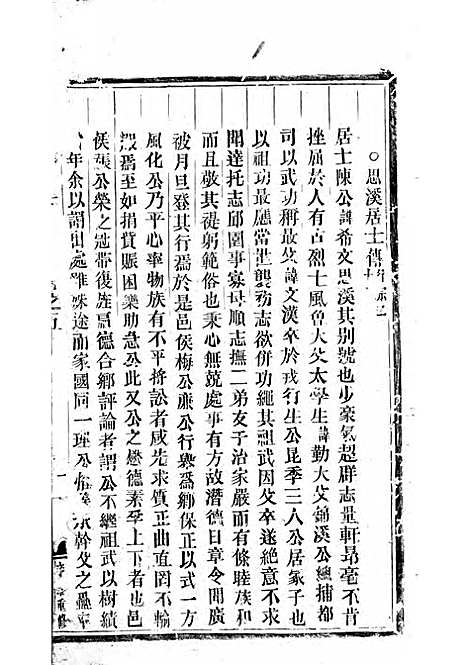 ○思溪居士傳
居士陳公諱希文思溪其別號也少豪氣超群志量軒昂毫不肯
挫屈於人有古烈士風曾大父太學生諱勤大父鏞溪公總捕都
司以武功稱最父諱文漢卒於戎行生公昆季三人公居冢子也
以祖功最應當世襲務志欲併功繩其祖武因父卒遂絕意不求
聞達托志邱園事寡母順志撫二弟友于治家嚴而有條睦族和
且敬其褆躬範俗也秉心無競處事有方故潛德日章令聞廣
被月旦登其行焉於是邑侯梅公廉公行舉為鄉保正以式一方
風化公乃平心率物族有不平將訟者咸先求質正曲直罔不輸
服焉至如捐貲賑困樂助急公此又公之懋德素孚上下者也邑
侯張公榮之冠帶復旌德合鄉評論者謂公不繼祖武以樹績
年余以謂出處雖殊途而家國同一理公幹父之蠱